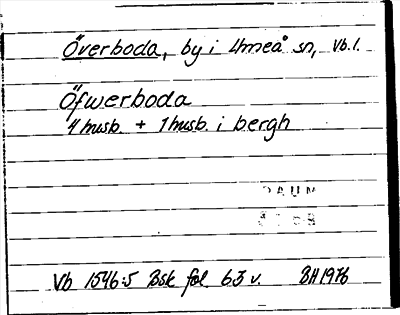 Överboda, by i Umeå sn, Vb.l.
Öfwerboda
4 husb. + 1 husb. i bergh
DAUM
Vb 1546:5 Bsk fol 63 v. BH 1976